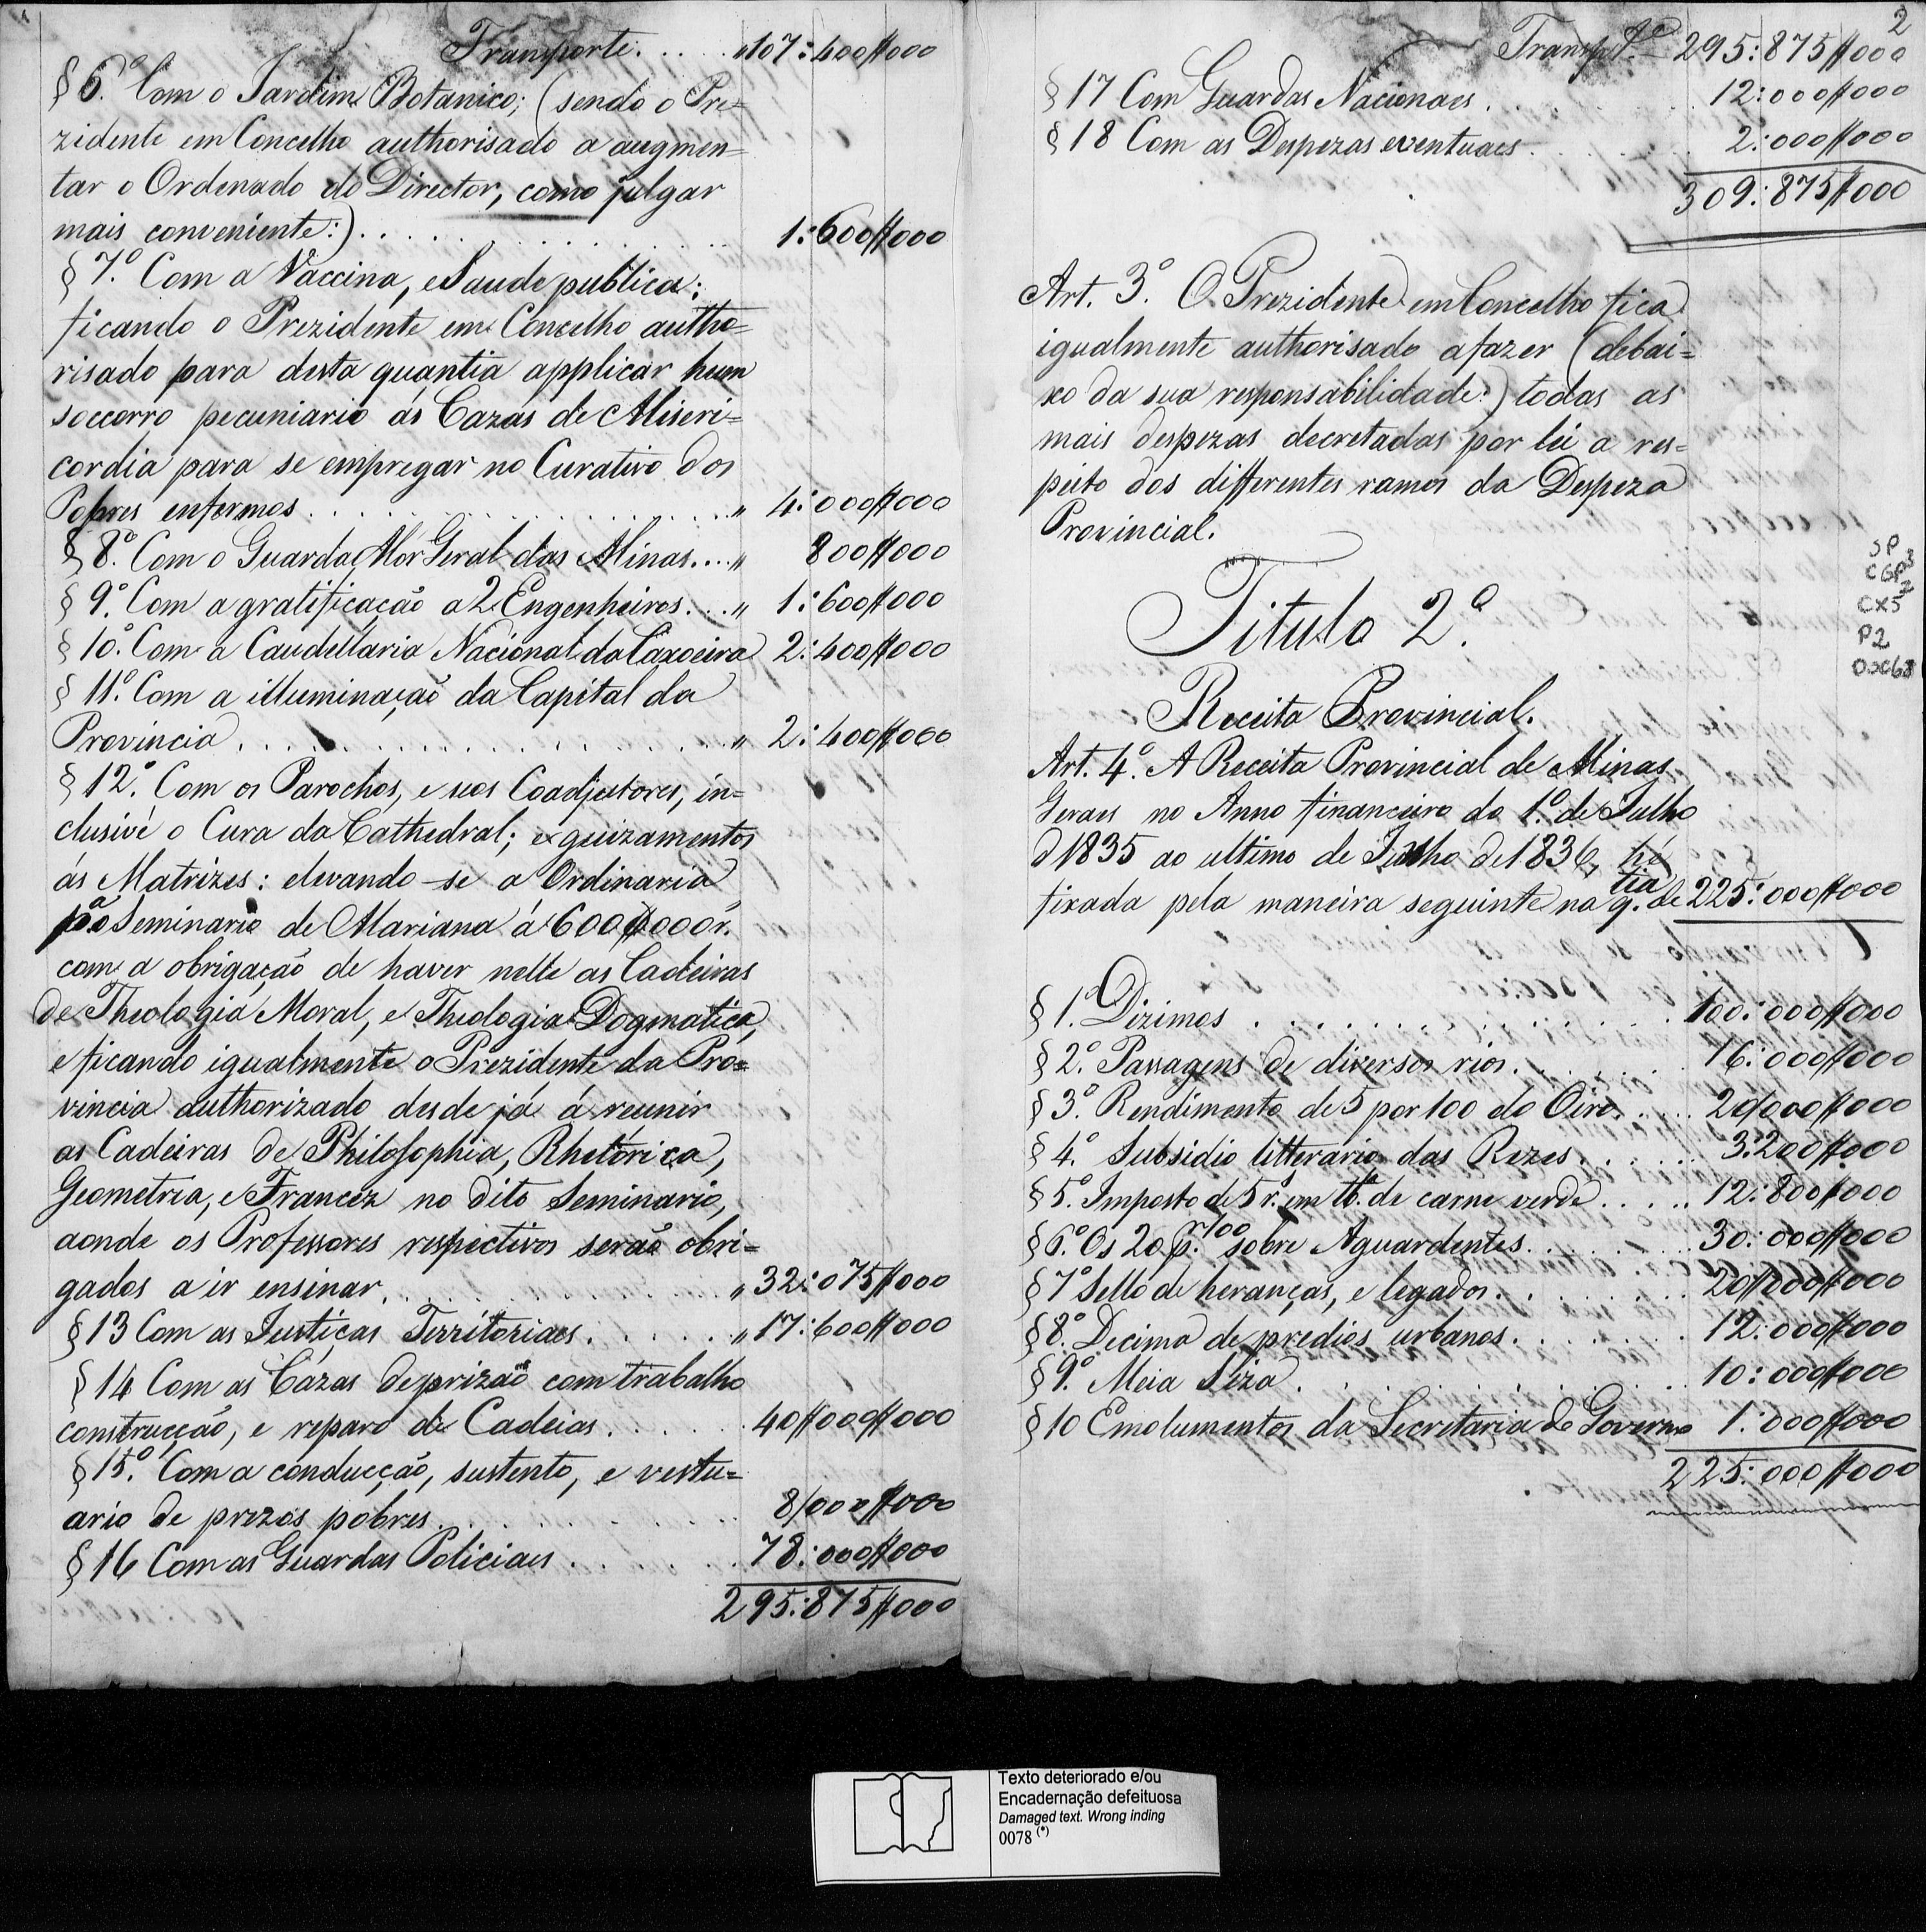 Transporte. . . . . " 107:400$000
§ 6.º Com o Jardim Botanico; (sendo o Pre=
zidente em Concelho authorisado a augmen=
tar o Ordenado do Director, como julgar
mais conveniente:) . . . . . . . . . . 1:600$000
§ 7.º Com a Vaccina, e Saude publica;
ficando o Prezidente em Concelho autho=
risado para desta quantia applicar hum
soccorro pecuniario ás Cazas de Miseri=
cordia para se empregar no Curativo dos
Pobres enfermos . . . . . . . . . . " 4:000$000
§ 8.º Com o Guarda Mór Geral das Minas. . . . " 800$000
§ 9.º Com a gratificação a 2 Engenheiros. . . " 1:600$000
§ 10.º Com a Caudellaria Nacional da Caxoeira 2:400$000
§ 11.º Com a illuminação da Capital da
Provincia . . . . . . . . . . " 2:400$000
§ 12.º Com os Parochos, e seos Coadjutores, in=
clusivé o Cura da Cathedral; e guizamentos
ás Matrizes: elevando-se a Ordinaria
pª o Seminario de Mariana á 600$000 r.
com a obrigação de haver nelle as Cadeiras
de Theologia Moral, e Theologia Dogmatica,
e ficando igualmente o Prezidente da Pro=
vincia authorizado desde já á reunir
as Cadeiras de Philosophia, Rhetorica,
Geometria, e Francez no dito Seminario,
aonde os Professores respectivos serão obri=
gados a ir ensinar. . . . . . . . . . " 32:075$000
§ 13 Com as Justiças Territoriaes. . . . . . " 17:600$000
§ 14 Com as Cázas de prizão com trabalho
construcção, e reparo de Cadeias. . . . . . 40$000$000
§ 15.º Com a conducção, sustento, e vestu=
ario de prezos pobres. . . . . . . . . . 8/000$000
§ 16 Com as Guardas Policiaes . . . . . . 78:000$000
295:875$000
2
Transpte 295:875$000
§ 17 Com Guardas Nacionaes . . . . . . 12:000$000
§ 18 Com as Despezas eventuaes . . . . . . 2:000$000
309:875$000
Art. 3.º O Prezidente em Concelho fica
igualmente authorisado a fazer (debai=
xo da sua responsabilidade:) todas as
mais despezas decretadas por lei a res=
peito dos differentes ramos da Despeza
Provincial.
SP
CGP3
CX5
P2
Titulo 2.º
Receita Provincial.
Art. 4.º A Receita Provincial de Minas
Geraes no Anno financeiro do 1.º de Julho
d 1835 ao ultimo de Junho de 1836, hé
fixada pela maneira seguinte na q.tia de 225:000$000
§ 1.º Dizimos . . . . . . . . . . 100:000$000
§ 2.º Passagens de diversos rios. . . . . . . 16:000$000
§ 3.º Rendimento de 5 por 100 do Oiro. . . . . 20/000$000
§ 4.º Subsidio litterario das Rezes . . . . . . 3:200$000
§ 5.º Imposto de 5 r. em lb. de carne verde . . . . . 12:800$000
§ 6.º Os 20 p.r 100 sobre Aguardentes. . . . . . . 30:000$000
§ 7º Sello de heranças, e legados. . . . . . . . 20$000$000
§ 8.º Decima de predios urbanos. . . . . . . . 12:000$000
§ 9.º Meia Siza . . . . . . . . . . 10:000$000
§ 10 Emolumentos da Secretaria do Governo 1:000$000
225:000$000
Texto deteriorado e/ou
Encadernação defeituosa
Damaged text. Wrong inding
0078 (*)